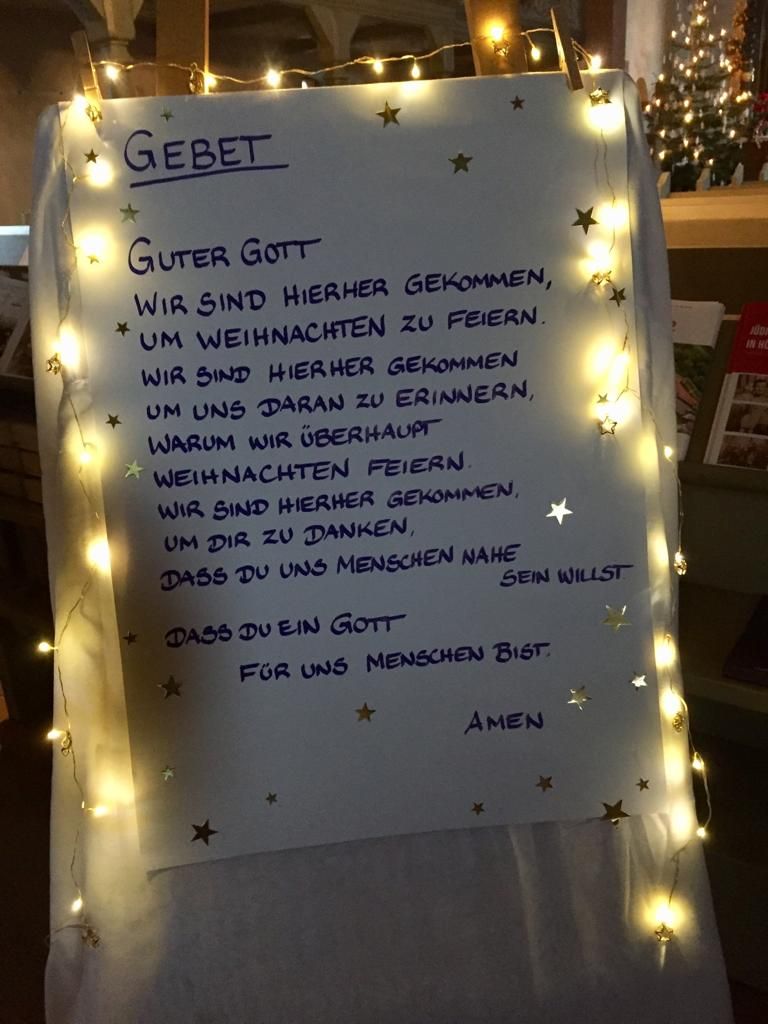 GEBET
GUTER GOTT
WIR SIND HIERHER GEKOMMEN,
UM WEIHNACHTEN ZU FEIERN.
WIR SIND HIERHER GEKOMMEN
UM UNS DARAN ZU ERINNERN,
WARUM WIR ÜBERHAUPT
WEIHNACHTEN FEIERN.
WIR SIND HIERHER GEKOMMEN,
UM DIR ZU DANKEN,
DASS DU UNS MENSCHEN NAHE
SEIN WILLST.
DASS DU EIN GOTT
FÜR UNS MENSCHEN BIST.
AMEN